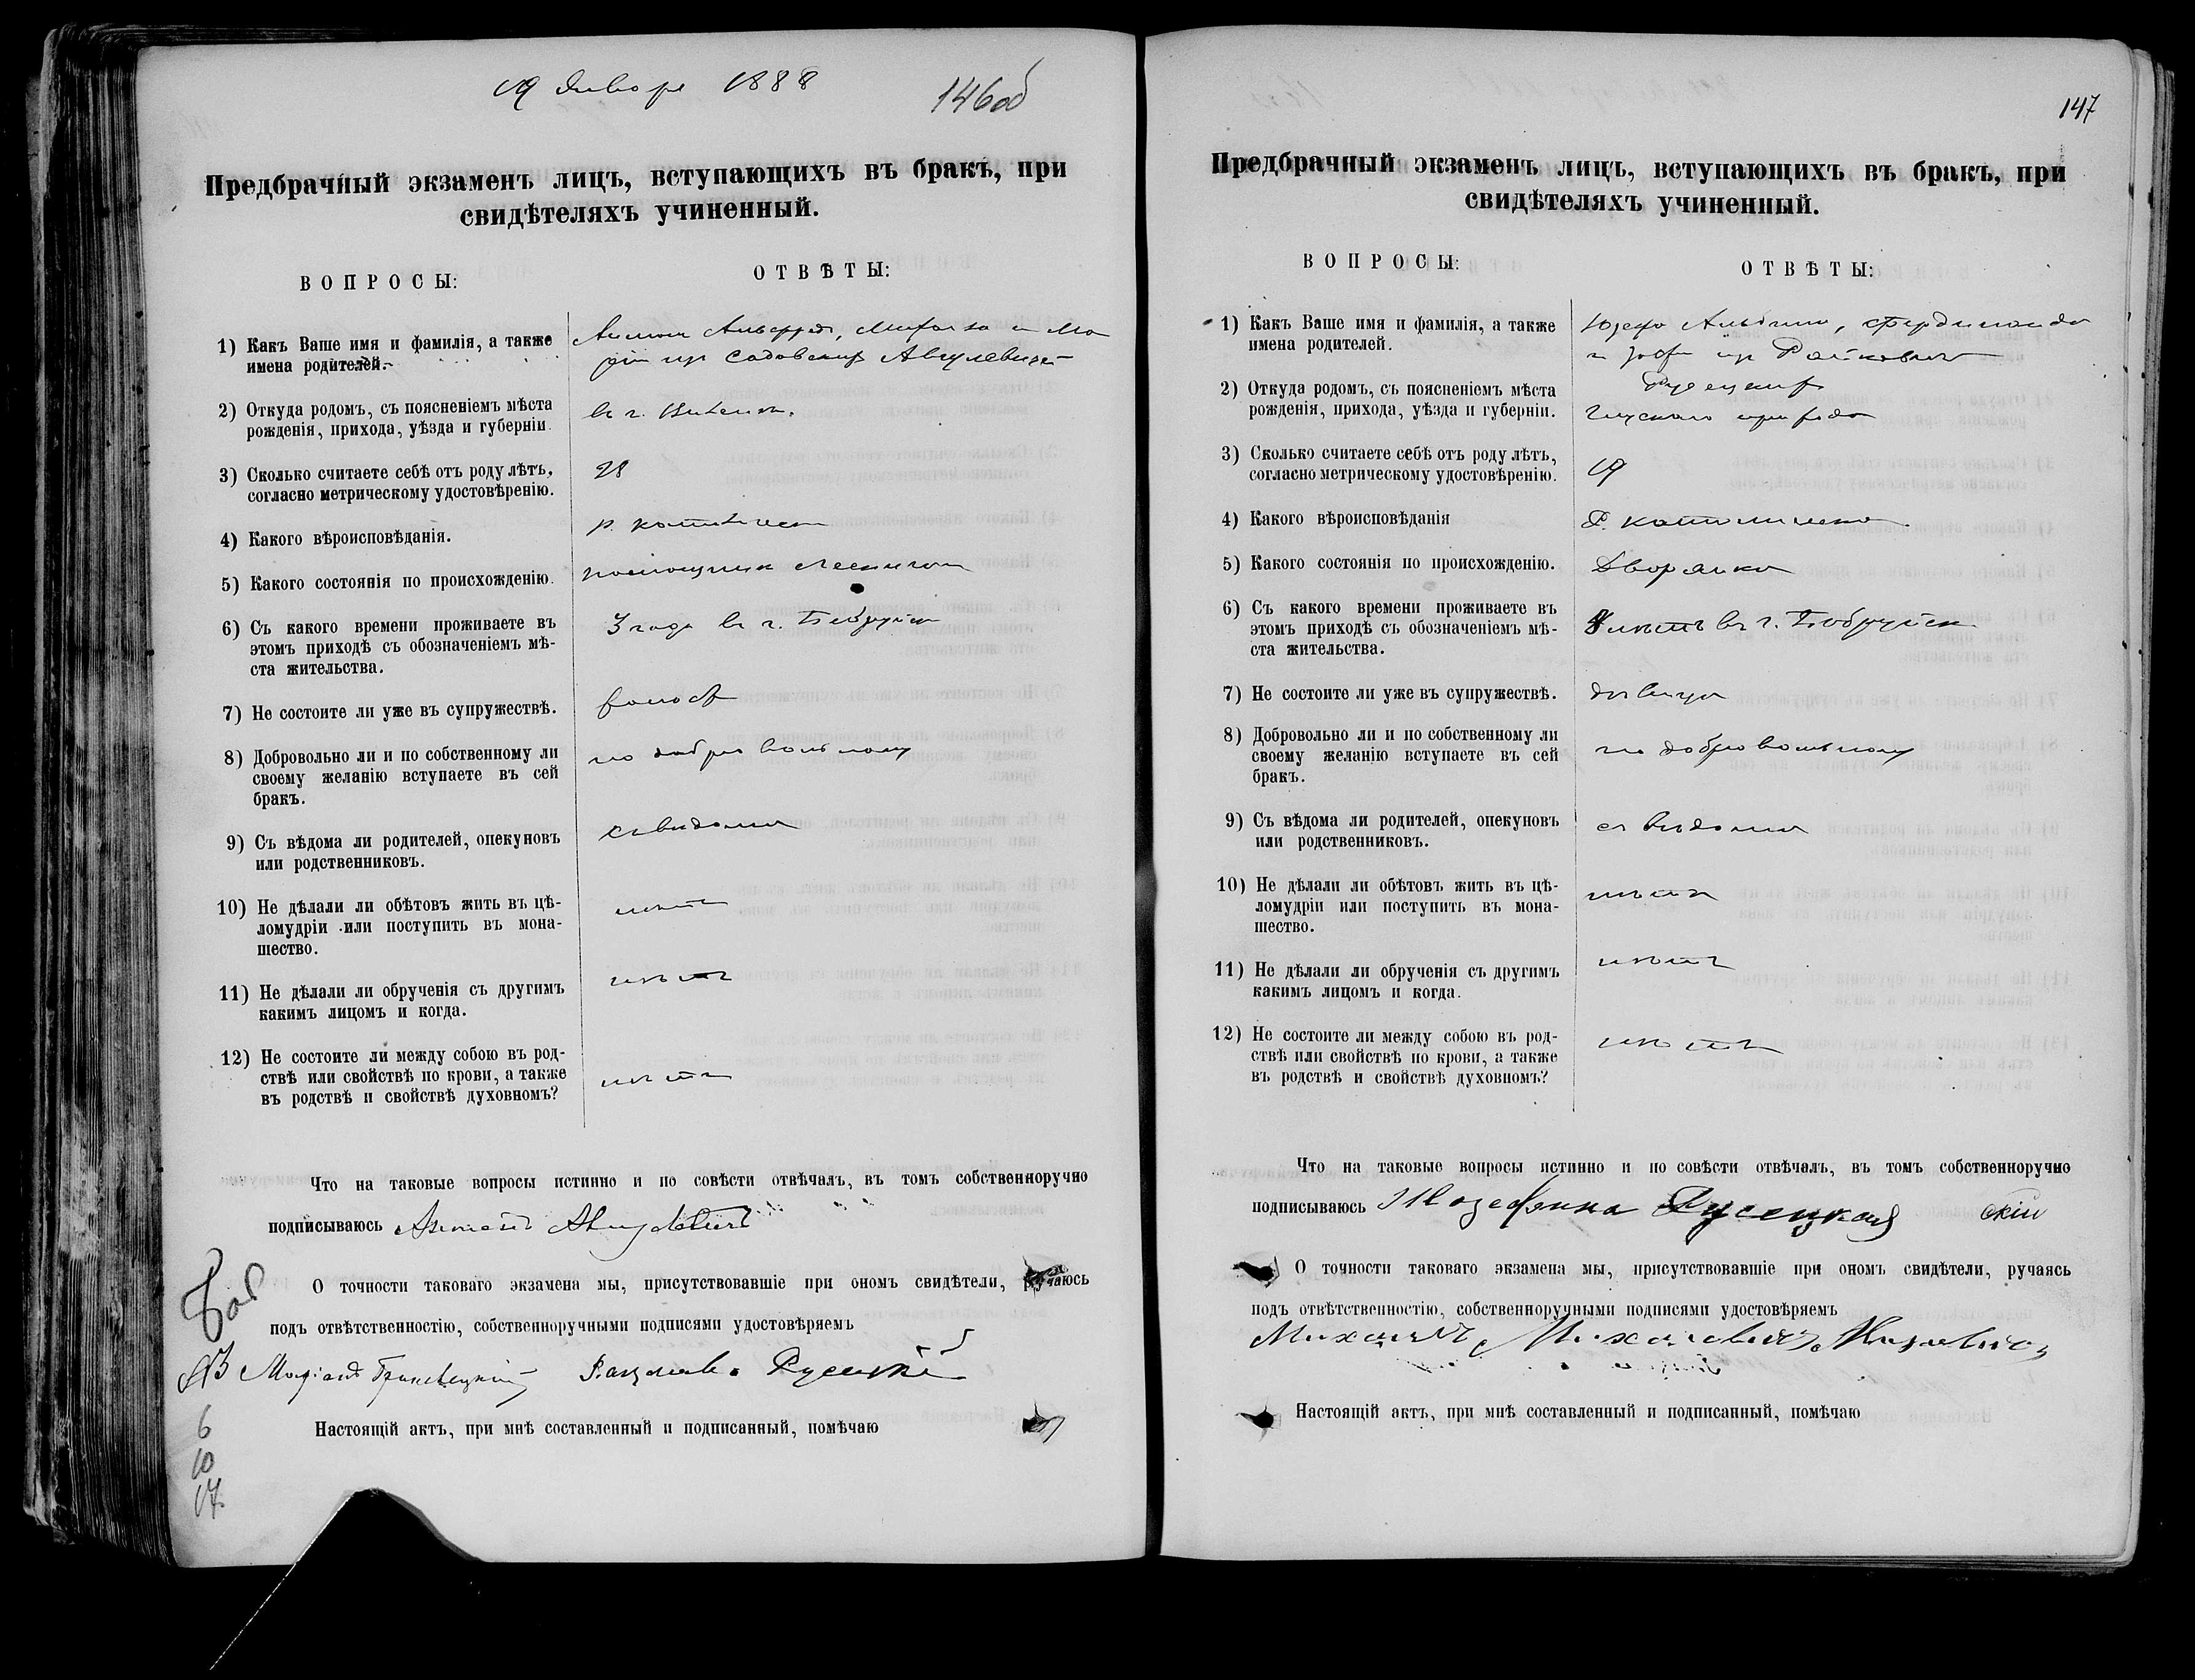 19 Января 1888
146об
Предбрачный экзаменъ лицъ, вступающихъ въ бракъ, при
свидѣтеляхъ учиненный.
ВОПРОСЫ:
ОТВѢТЫ:
1) Какъ Ваше имя и фамилія, а также
имена родителей.
2) Откуда родомъ, съ поясненіемъ мѣста
рожденія, прихода, уѣзда и губерніи.
въ г.
3) Сколько считаете себѣ отъ роду лѣтъ,
согласно метрическому удостовѣренію.
28
4) Какого вѣроисповѣданія.
р.
5) Какого состоянія по происхожденію.
помощник
6) Съ какого времени проживаете въ
этомъ приходѣ съ обозначеніемъ мѣ-
ста жительства.
3 года въ г. Бобруйск
7) Не состоите ли уже въ супружествѣ.
холост
8) Добровольно ли и по собственному ли
своему желанію вступаете въ сей
бракъ.
по добровольному
9) Съ вѣдома ли родителей, опекуновъ
или родственниковъ.
съ вѣдома
10) Не дѣлали ли обѣтовъ жить въ цѣ-
ломудріи или поступить въ мона-
шество.
нѣтъ
11) Не дѣлали ли обрученія съ другимъ
какимъ лицомъ и когда.
нѣтъ
12) Не состоите ли между собою въ род-
ствѣ или свойствѣ по крови, а также
въ родствѣ и свойствѣ духовномъ?
нѣтъ
Что на таковые вопросы истинно и по совѣсти отвѣчалъ, въ томъ собственноручно
подписываюсь
О точности таковаго экзамена мы, присутствовавшіе при ономъ свидѣтели, ручаюсь
подъ отвѣтственностію, собственноручными подписями удостовѣряемъ
Русецкій
Настоящій актъ, при мнѣ составленный и подписанный, помѣчаю
6
10
147
Предбрачный экзаменъ лицъ, вступающихъ въ бракъ, при
свидѣтеляхъ учиненный.
ВОПРОСЫ:
ОТВѢТЫ:
1) Какъ Ваше имя и фамилія, а также
имена родителей.
2) Откуда родомъ, съ поясненіемъ мѣста
рожденія, прихода, уѣзда и губерніи.
Глускаго прихода
3) Сколько считаете себѣ отъ роду лѣтъ,
согласно метрическому удостовѣренію.
19
4) Какого вѣроисповѣданія
Р. католическа
5) Какого состоянія по происхожденію.
Дворянка
6) Съ какого времени проживаете въ
этомъ приходѣ съ обозначеніемъ мѣ-
ста жительства.
лѣтъ въ г. Бобруйск
7) Не состоите ли уже въ супружествѣ.
дѣвица
8) Добровольно ли и по собственному ли
своему желанію вступаете въ сей
бракъ.
по добровольному
9) Съ вѣдома ли родителей, опекуновъ
или родственниковъ.
съ вѣдома
10) Не дѣлали ли обѣтовъ жить въ цѣ-
ломудріи или поступить въ мона-
шество.
нѣтъ
11) Не дѣлали ли обрученія съ другимъ
какимъ лицомъ и когда.
нѣтъ
12) Не состоите ли между собою въ род-
ствѣ или свойствѣ по крови, а также
въ родствѣ и свойствѣ духовномъ?
нѣтъ
Что на таковые вопросы истинно и по совѣсти отвѣчалъ, въ томъ собственноручно
подписываюсь Іозефина Русецкая скій
О точности таковаго экзамена мы, присутствовавшіе при ономъ свидѣтели, ручаясь
подъ отвѣтственностію, собственноручными подписями удостовѣряемъ
Михаилъ Михаловичъ
Настоящій актъ, при мнѣ составленный и подписанный, помѣчаю